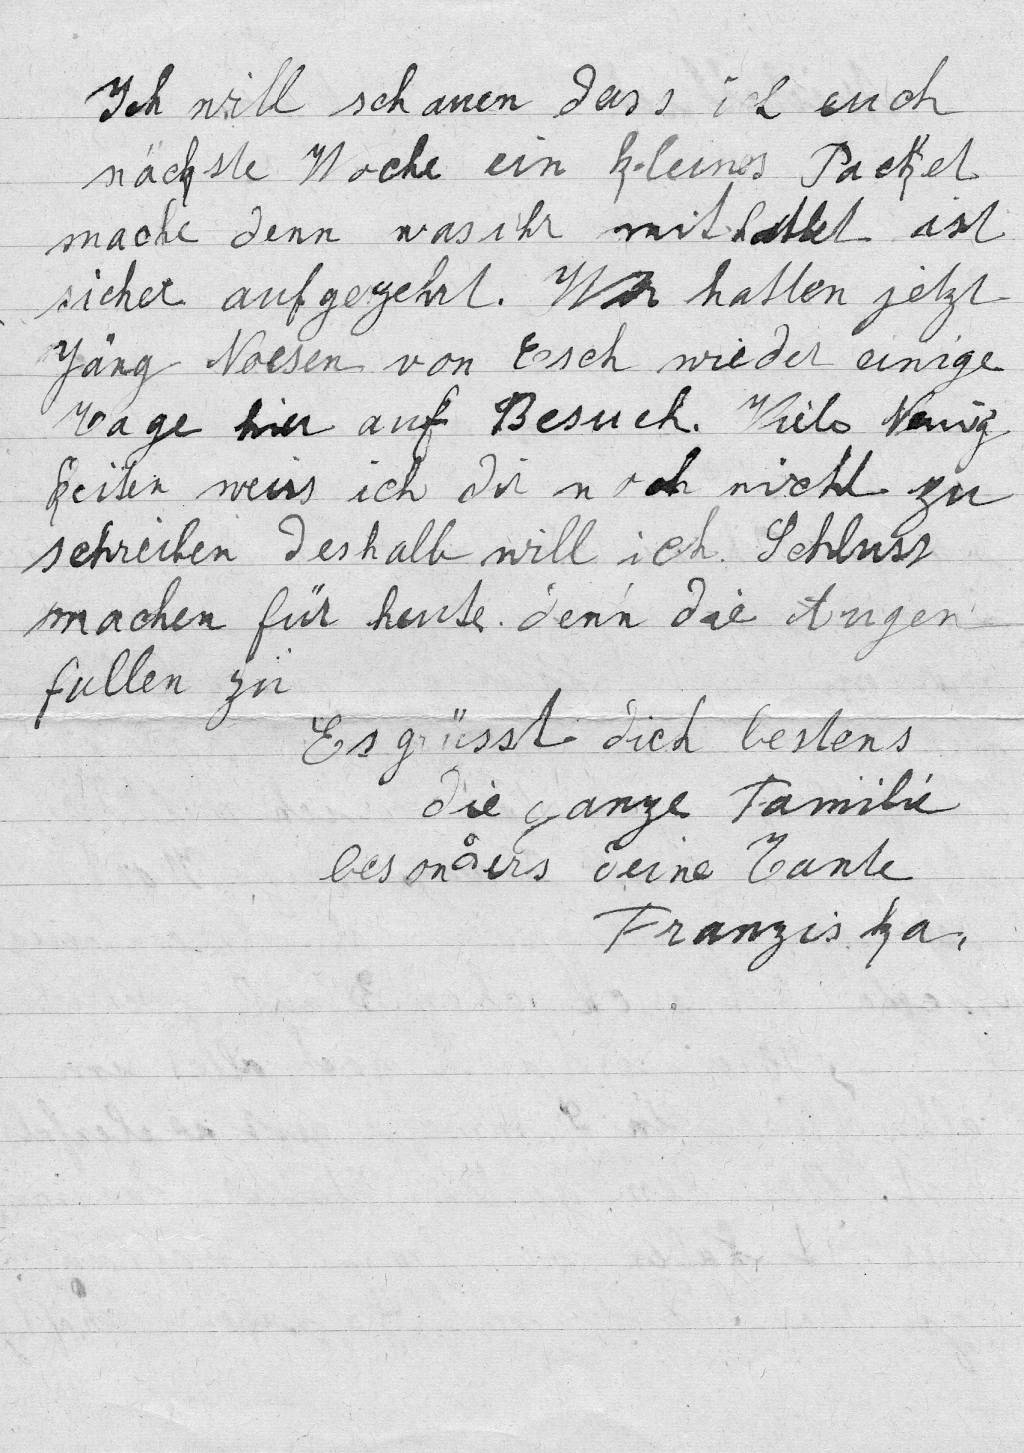 Ich will schauen dass ich euch
nächste Woche ein kleines Packet
mache denn was ihr mit hattet ist
sicher aufgezehrt. Wir hatten jetzt
Jäng Noesen von Esch wieder einige
Tage hier auf Besuch. Viele Neuig
keiten weiss ich dir noch nicht zu
schreiben deshalb will ich Schluss
machen für heute denn die Augen
fallen zu
Es grüsst dich bestens
die ganze Familie
besonders deine Tante
Franziska.